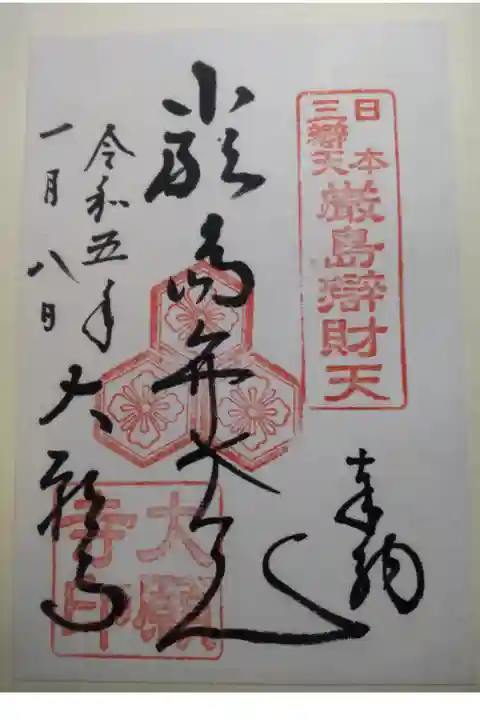 日本
三辯天
厳島辯財天
奉納
厳島弁才天
令和五年
一月八日
大願寺
大願
寺印